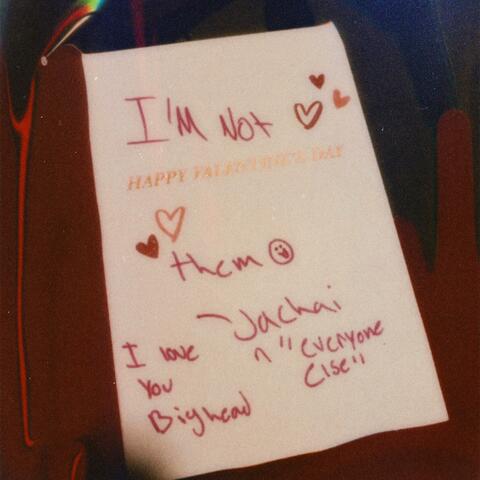 I'M Not
HAPPY VALENTINE'S DAY
them
~Jachai
n "everyone
else"
I love
you
Bighead